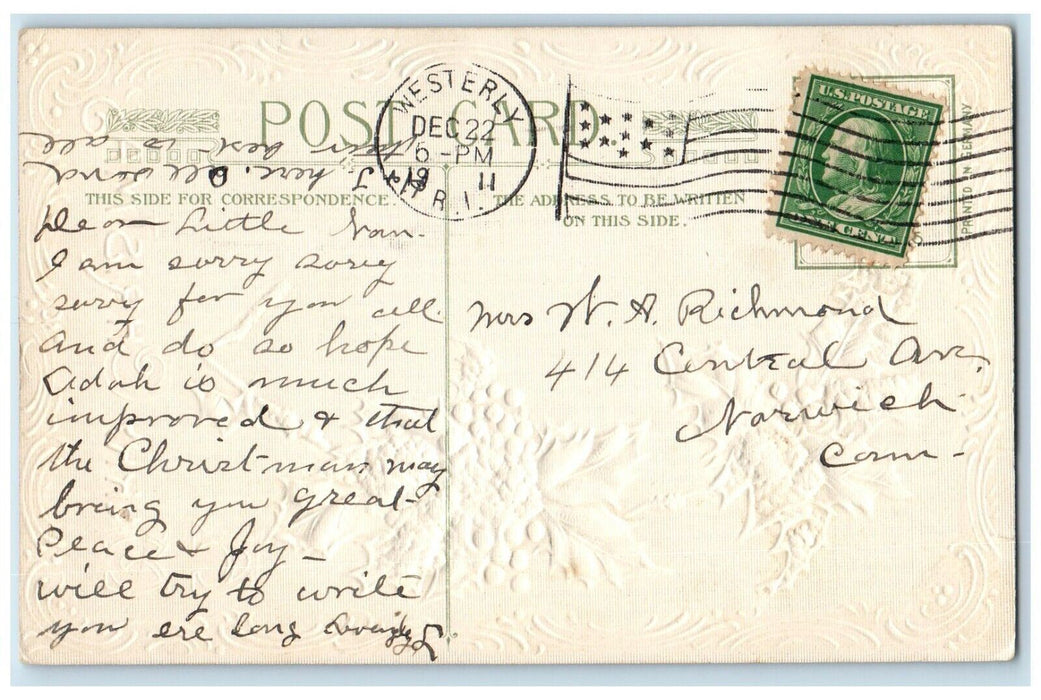 POST CARD
THIS SIDE FOR CORRESPONDENCE.
THE ADDRESS TO BE WRITTEN
ON THIS SIDE.
WESTERLY
DEC 22
6 - PM
19 11
R.I.
U.S. POSTAGE
ONE CENT
PRINTED IN GERMANY
Dear Little Nan.
I am sorry sorry
sorry for you all.
and do so hope
Adah is much
improved & that
the Christmas may
bring you great
Peace & Joy -
will try to write
you ere long Lovingly
I here. all send
their best to all
Mrs W. A. Richmond
414 Central Ave,
Norwich
Conn -